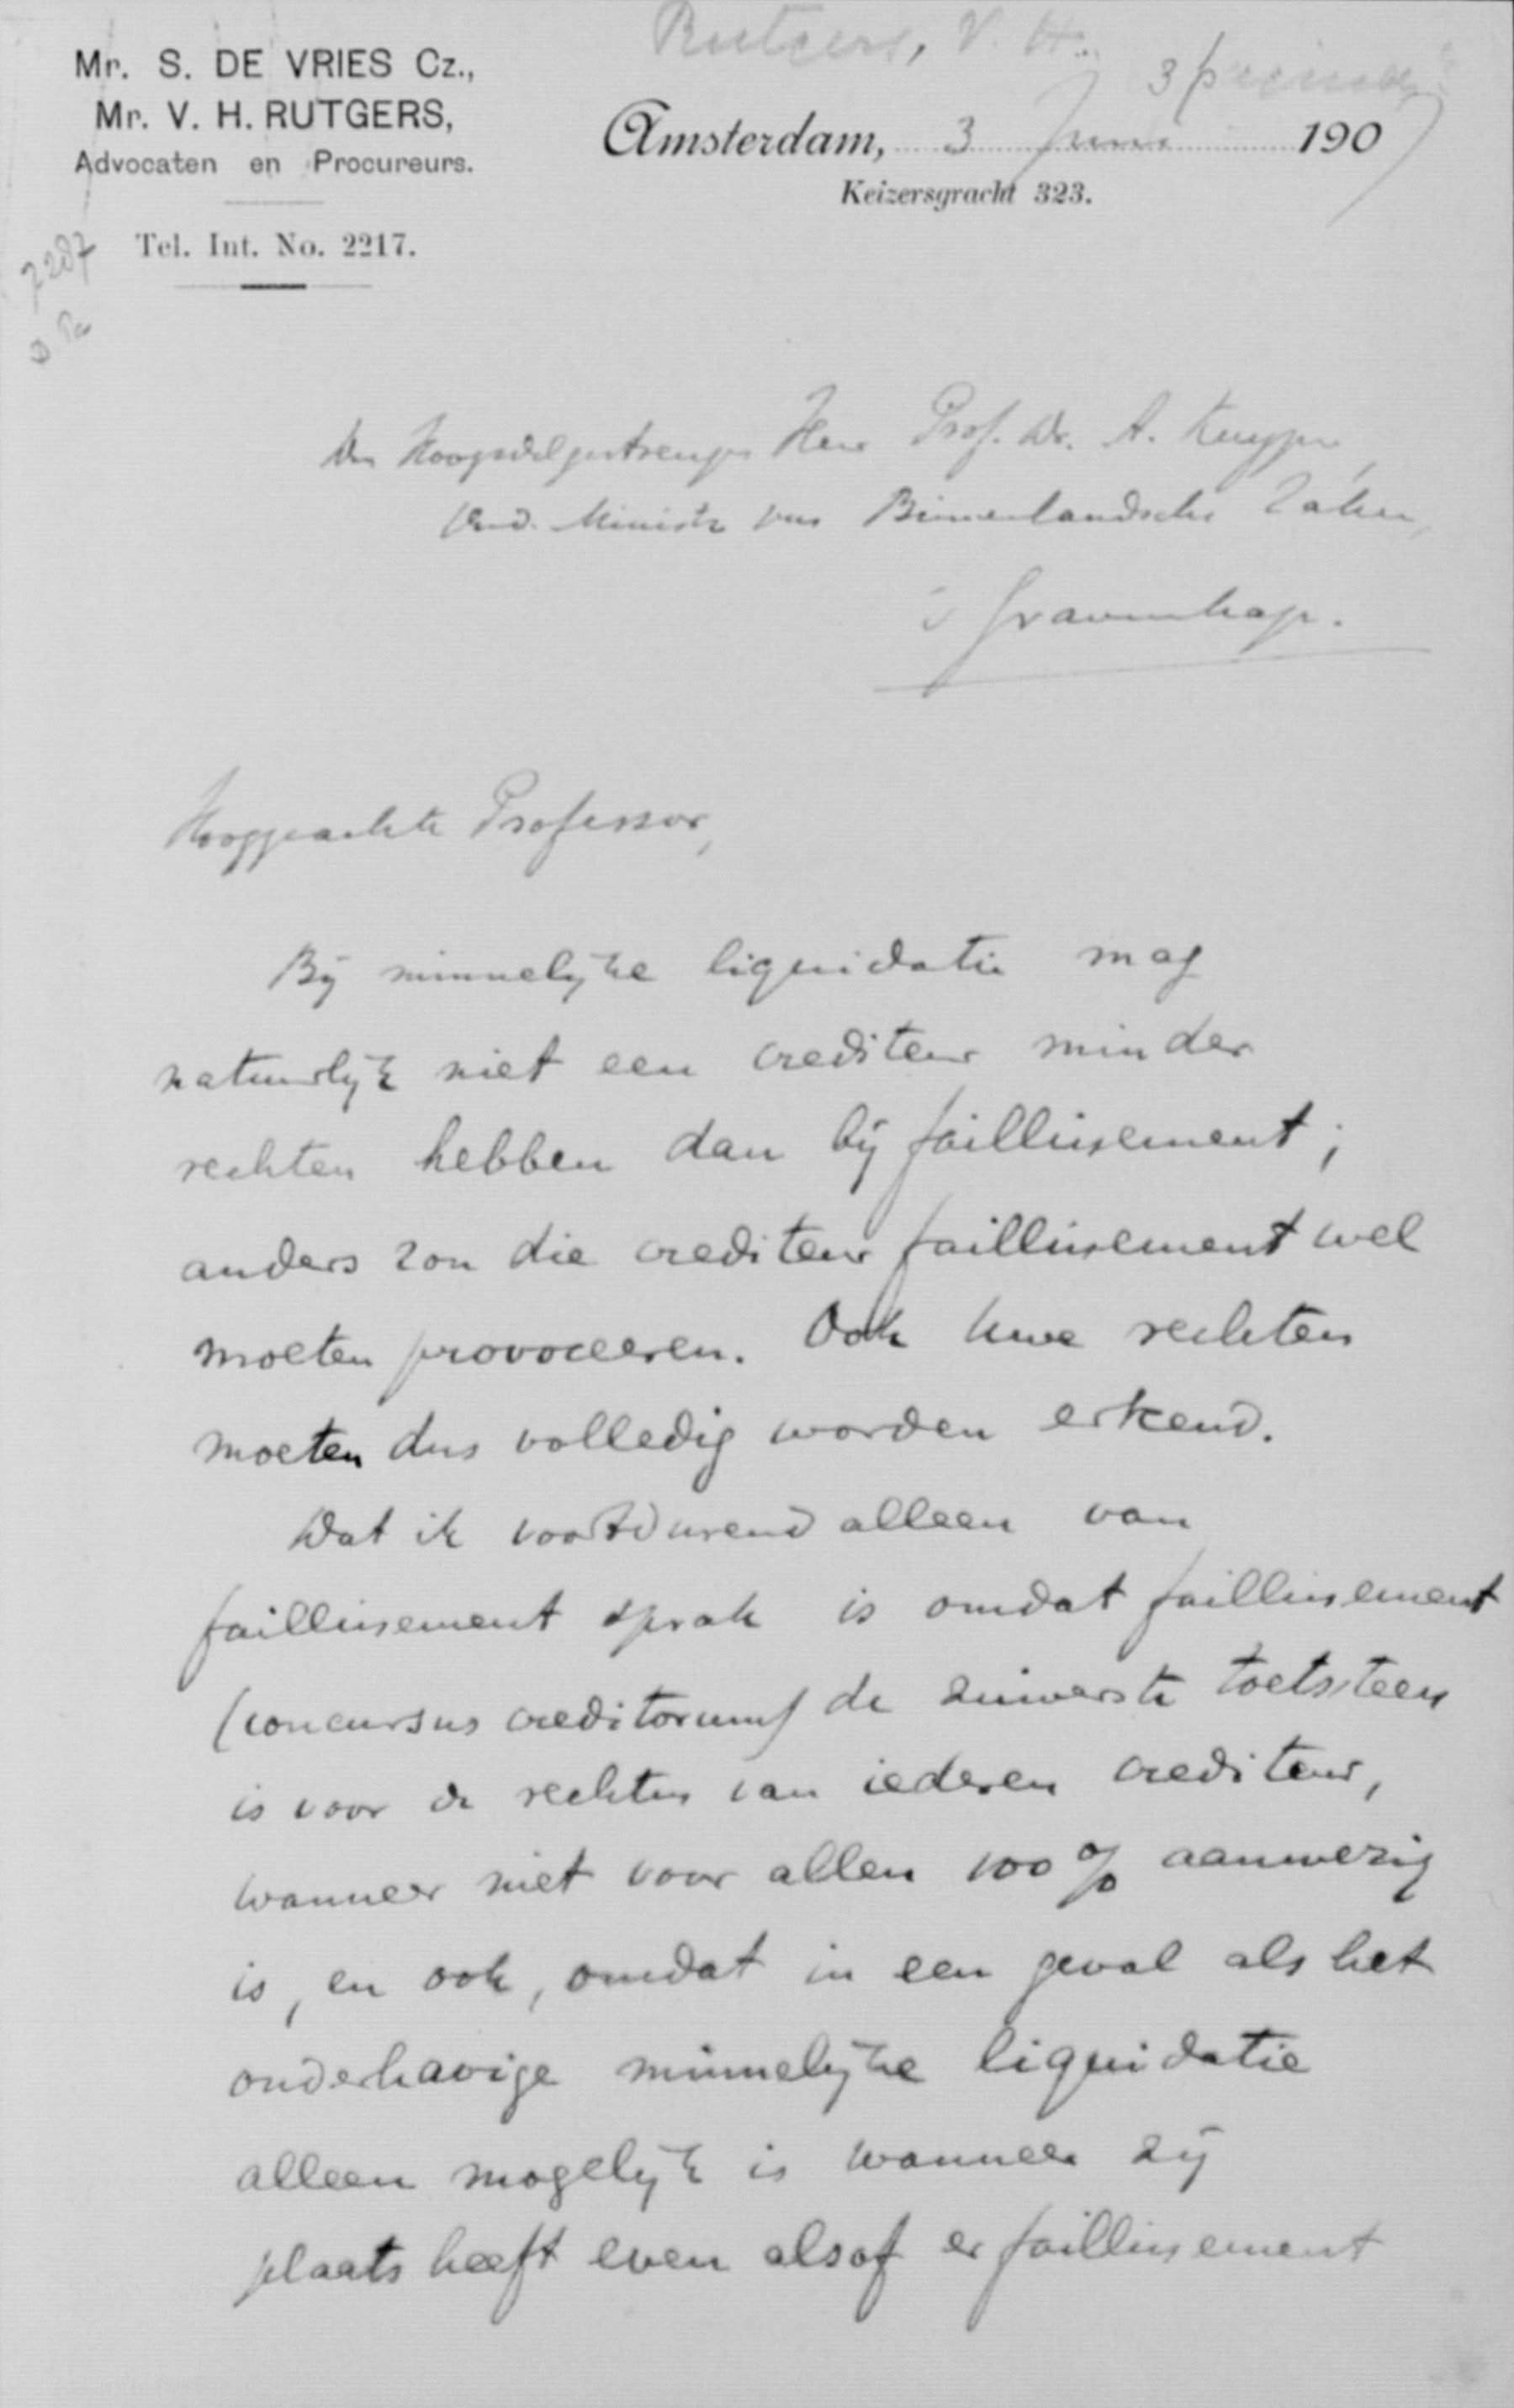 Rutgers, V. H.
Mr. S. DE VRIES Cz.,
Mr. V. H. RUTGERS,
Advocaten en Procureurs.
Tel. Int. No. 2217.
7287
Amsterdam, 3 Juni 1907
Keizersgracht 323.
Den Hoogedelgestrengen Heer Prof. Dr. A. Kuyper,
Oud. Minister van Binnenlandsche Zaken,
's Gravenhage.
Hooggeachte Professor,
Bij minnelijke liquidatie mag
natuurlijk niet een crediteur minder
rechten hebben dan bij faillissement;
anders zou die crediteur faillissement wel
moeten provoceeren. Ook uwe rechten
moeten dus volledig worden erkend.
Dat ik voortdurend alleen van
faillissement sprak is omdat faillissement
(concursus creditorum) de zuiverste toetssteen
is voor de rechten van iederen crediteur,
wanneer niet voor allen 100 % aanwezig
is, en ook, omdat in een geval als het
onderhavige minnelijke liquidatie
alleen mogelijk is wanneer zij
plaats heeft even alsof er faillissement